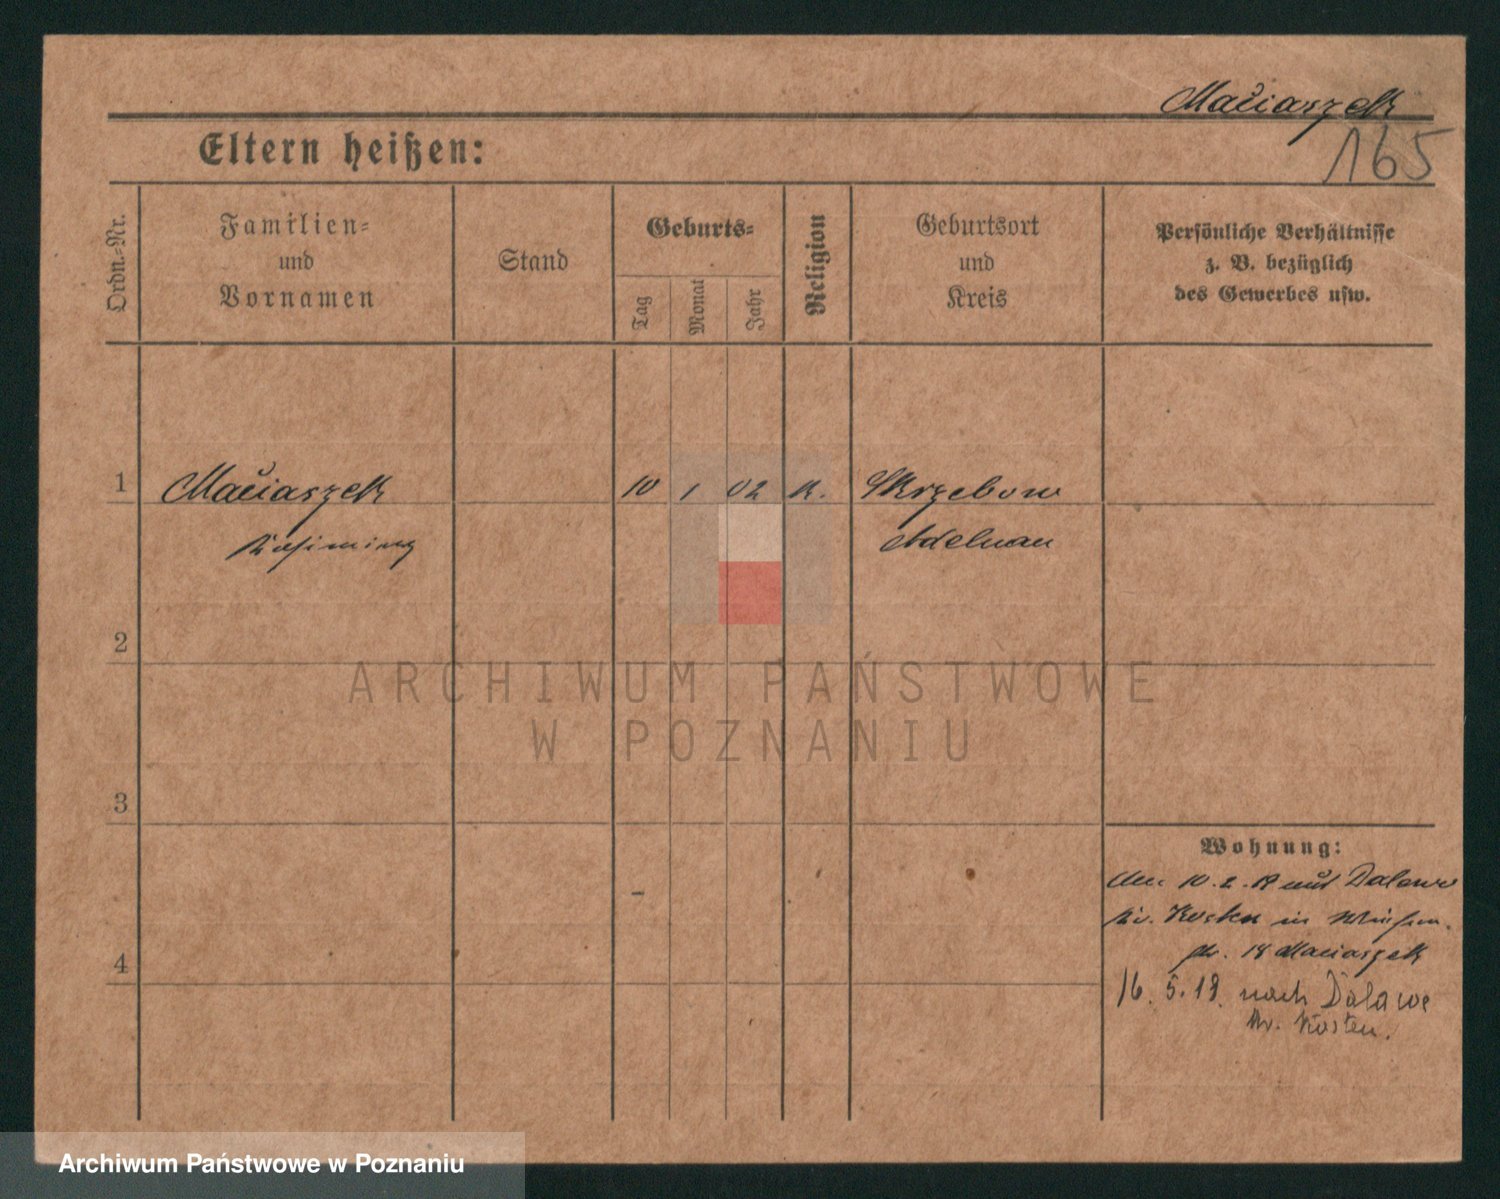 Maciaszek
165
Eltern heißen:
Ordn.-Nr.
Familien-
und
Vornamen
Stand
Geburts-
Tag
Monat
Jahr
Religion
Geburtsort
und
Kreis
Persönliche Verhältnisse
z. B. bezüglich
des Gewerbes usw.
1
Maciaszek
10
1
02
K.
Skrzebow
Kasimir
Adelnau
2
ARCHIWUM PAŃSTWOWE
W POZNANIU
3
Wohnung:
10.2.18 aus Dalewo
Kr. Kosten in
18 Maciaszek
4
16. 5. 18. nach Dalewe
Kr. Kosten.
Archiwum Państwowe w Poznaniu